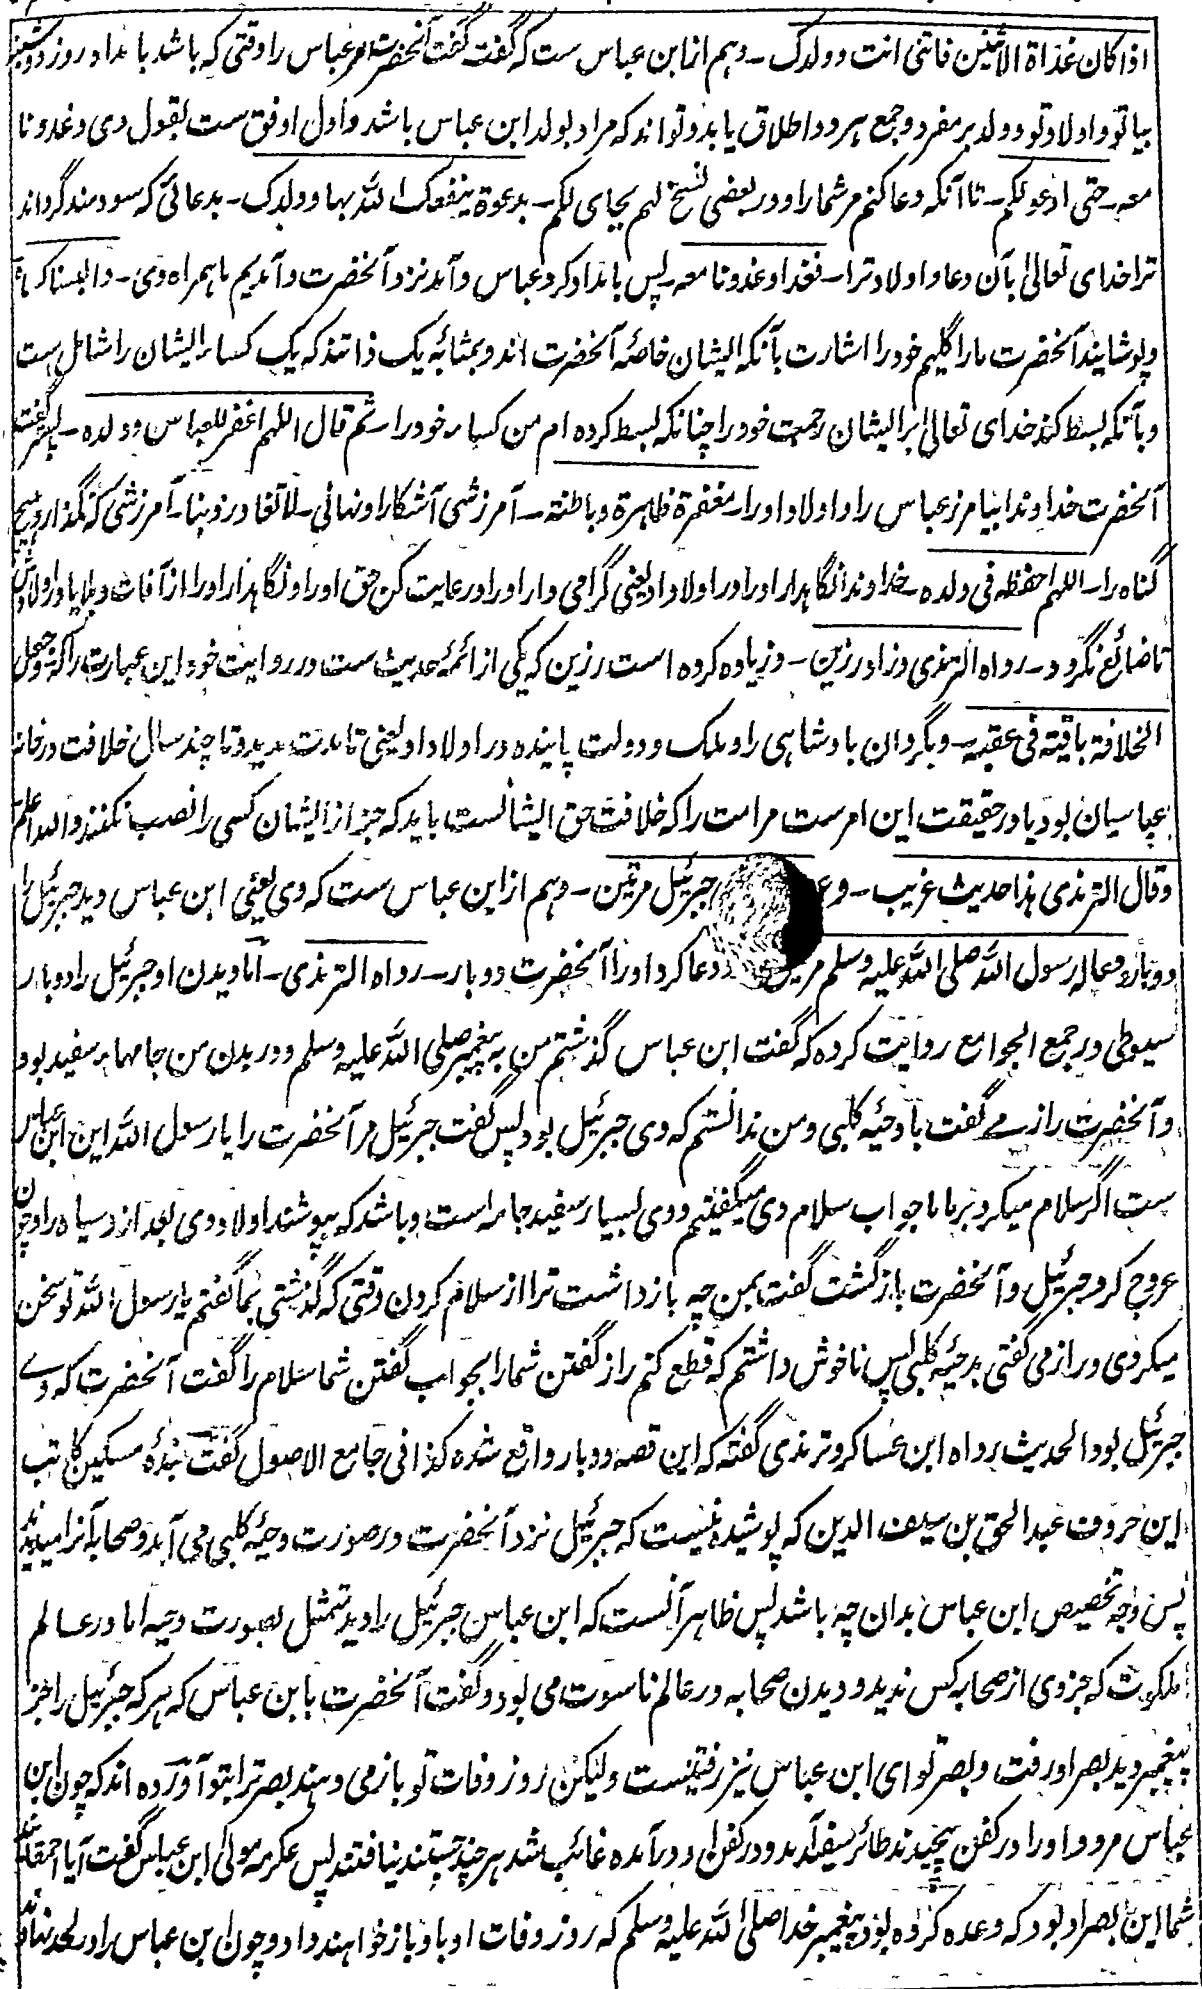 اذا کان غداة الاثنین فاتنی انت وولدک ـ وہم از ابن عباس ست کہ گفت گفت آنحضرت مر عباس را وقتی کہ باشد بامداد روز دوشنبہ
بیا تو و اولاد تو و ولد بر مفرد و جمع ہر دو اطلاق یابد و تواند کہ مراد بولد ابن عباس باشد و اول اوفق ست بقول وی و غدونا
معہ ـ حتی ادعو لکم ـ تا آنکہ دعا کنم مر شما را و در بعضی نسخ لہم بجای لکم ـ بدعوة ینفعک اللہ بہا وولدک ـ بدعائی کہ سودمند گرداند
ترا خدای تعالی بآن دعا و اولاد ترا ـ فغدا وغدونا معہ ـ پس بامداد کرد عباس و آمد نزد آنحضرت و آمدیم ما ہمراہ وی ـ والبسنا کساءہ
و پوشانید آنحضرت ما را گلیم خود را اشارت بآنکہ ایشان خاصۂ آنحضرت اند و بمثابۂ یک ذاتند کہ یک کسا ایشان را شامل ست
و بآنکہ بسط کند خدای تعالی بر ایشان رحمت خود را چنانکہ بسط کردہ ام من کساء خود را ـ ثم قال اللہم اغفر للعباس وولدہ ـ پستر گفت
آنحضرت خداوندا بیامرز عباس را و اولاد او را ـ مغفرة ظاہرة وباطنة ـ آمرزشی آشکارا و نہانی ـ لا تغادر ذنبا ـ آمرزشی کہ نگذارد ہیچ
گناہ را ـ اللہم احفظہ فی ولدہ ـ خداوندا نگاہدار او را در اولاد او یعنی گرامی دار او را و رعایت کن حق او را و نگاہدار او را از آفات و بلایا در اولاد وی
تا ضائع نگردد ـ رواہ الترمذی وزاد رزین ـ و زیادہ کردہ است رزین کہ یکی از ائمۂ حدیث ست در روایت خود این عبارت را کہ واجعل
الخلافة باقیة فی عقبہ ـ و بگردان بادشاہی را و ملک و دولت پایندہ در اولاد او یعنی تا مدت مدید و تا چند سال خلافت در خانہ
عباسیان بود یا در حقیقت این امرست مر امت را کہ خلافت حق ایشانست باید کہ جز از ایشان کسی را نصب نکنند واللہ اعلم
وقال الترمذی ہذا حدیث غریب ـ جبرئیل مرتین ـ وہم از ابن عباس ست کہ وی یعنی ابن عباس دید جبرئیل را
دوبار ودعا لہ رسول اللہ صلی اللہ علیہ وسلم مرتین دعا کرد او را آنحضرت دوبار ـ رواہ الترمذی ـ اما دیدن او جبرئیل را دوبار
سیوطی در جمع الجوامع روایت کردہ کہ گفت ابن عباس گذشتم من بہ پیغمبر صلی اللہ علیہ وسلم و در بدن من جامہای سفید بود
و آنحضرت راز می گفت با دحیۂ کلبی و من ندانستم کہ وی جبرئیل بود پس گفت جبرئیل مر آنحضرت را یا رسول اللہ این ابن عباس
ست اگر سلام میکرد بر ما ما جواب سلام وی میگفتیم و وی بسیار سفید جامہ است و باشد کہ بپوشند اولاد وی بعد از وی سیاہ را و چون
عروج کرد جبرئیل و آنحضرت بازگشت گفت بمن چہ بازداشت ترا از سلام کردن وقتی کہ گذشتی بما گفتم یا رسول اللہ تو سخن
میکردی و راز می گفتی بدحیۂ کلبی پس ناخوش داشتم کہ قطع کنم راز گفتن شما را بجواب گفتن شما سلام را گفت آنحضرت کہ وے
جبرئیل بود الحدیث رواہ ابن عساکر و ترمذی گفتہ کہ این قصہ دوبار واقع شدہ کذا فی جامع الاصول گفت بندۂ مسکین کاتب
این حروف عبد الحق بن سیف الدین کہ پوشیدہ نیست کہ جبرئیل نزد آنحضرت در صورت دحیۂ کلبی می آمد و صحابہ آنرا میدیدند
پس وجہ تخصیص ابن عباس بدان چہ باشد پس ظاہر آنست کہ ابن عباس جبرئیل را دید متمثل بصورت دحیہ اما در عالم
ملکوت کہ جز وی از صحابہ کس ندید و دیدن صحابہ در عالم ناسوت می بود و گفت آنحضرت با ابن عباس کہ ہر کہ جبرئیل را جز
پیغمبر دید بصر او رفت و بصر تو ای ابن عباس نیز رفتنیست ولیکن روز وفات تو باز می دہند بصر ترا بتو آوردہ اند کہ چون ابن
عباس مرد و او را در کفن پیچیدند طائر سفید آمد و در کفن او درآمدہ غائب شد ہر چند جستند نیافتند پس عکرمہ مولی ابن عباس گفت آیا احمقانید
شما این بصر او بود کہ وعدہ کردہ بود پیغمبر خدا صلی اللہ علیہ وسلم کہ روز وفات او باو باز خواہند داد و چون ابن عباس را در لحد نہادند